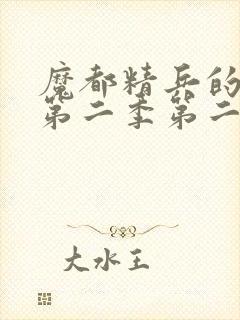 魔都精兵的
第二季第二
大水王